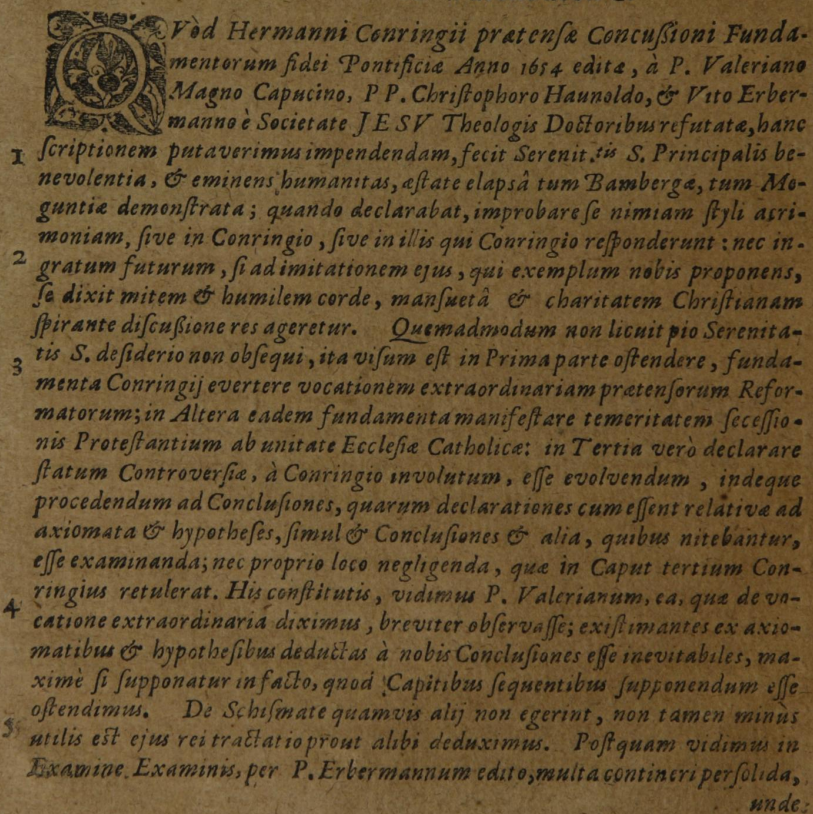 QVòd Hermanni Conringii prætensæ Concußioni Funda-
mentorum fidei Pontificiæ Anno 1654 editæ, à P. Valeriano
Magno Capucino, PP. Christophoro Haunoldo, & Vito Erber-
manno è Societate JESV Theologis Doctoribus refutatæ, hanc
1 scriptionem putaverimus impendendam, fecit Serenit.tis S. Principalis be-
nevolentia, & eminens humanitas, æstate elapsâ tum Bambergæ, tum Mo-
guntiæ demonstrata; quando declarabat, improbare se nimiam styli acri-
moniam, sive in Conringio, sive in illis qui Conringio responderunt: nec in-
2 gratum futurum, si ad imitationem ejus, qui exemplum nobis proponens,
se dixit mitem & humilem corde, mansuetâ & charitatem Christianam
spirante discußione res ageretur. Quemadmodum non licuit pio Serenita-
3 tis S. desiderio non obsequi, ita visum est in Prima parte ostendere, funda-
menta Conringij evertere vocationem extraordinariam prætensorum Refor-
matorum; in Altera eadem fundamenta manifestare temeritatem secessio-
nis Protestantium ab unitate Ecclesiæ Catholicæ: in Tertia verò declarare
statum Controversiæ, à Conringio involutum, esse evolvendum, indeque
procedendum ad Conclusiones, quarum declarationes cum essent relativæ ad
axiomata & hypotheses, simul & Conclusiones & alia, quibus nitebantur,
esse examinanda; nec proprio loco negligenda, quæ in Caput tertium Con-
ringius retulerat. His constitutis, vidimus P. Valerianum, ea, quæ de vo-
4 catione extraordinariâ diximus, breviter observasse; existimantes ex axio-
matibus & hypothesibus deductas à nobis Conclusiones esse inevitabiles, ma-
ximè si supponatur in facto, quod Capitibus sequentibus supponendum esse
ostendimus. De Schismate quamvis alij non egerint, non tamen minùs
5 utilis est ejus rei tractatio prout alibi deduximus. Postquam vidimus in
Examine Examinis, per P. Erbermannum edito, multa contineri persolida,
unde